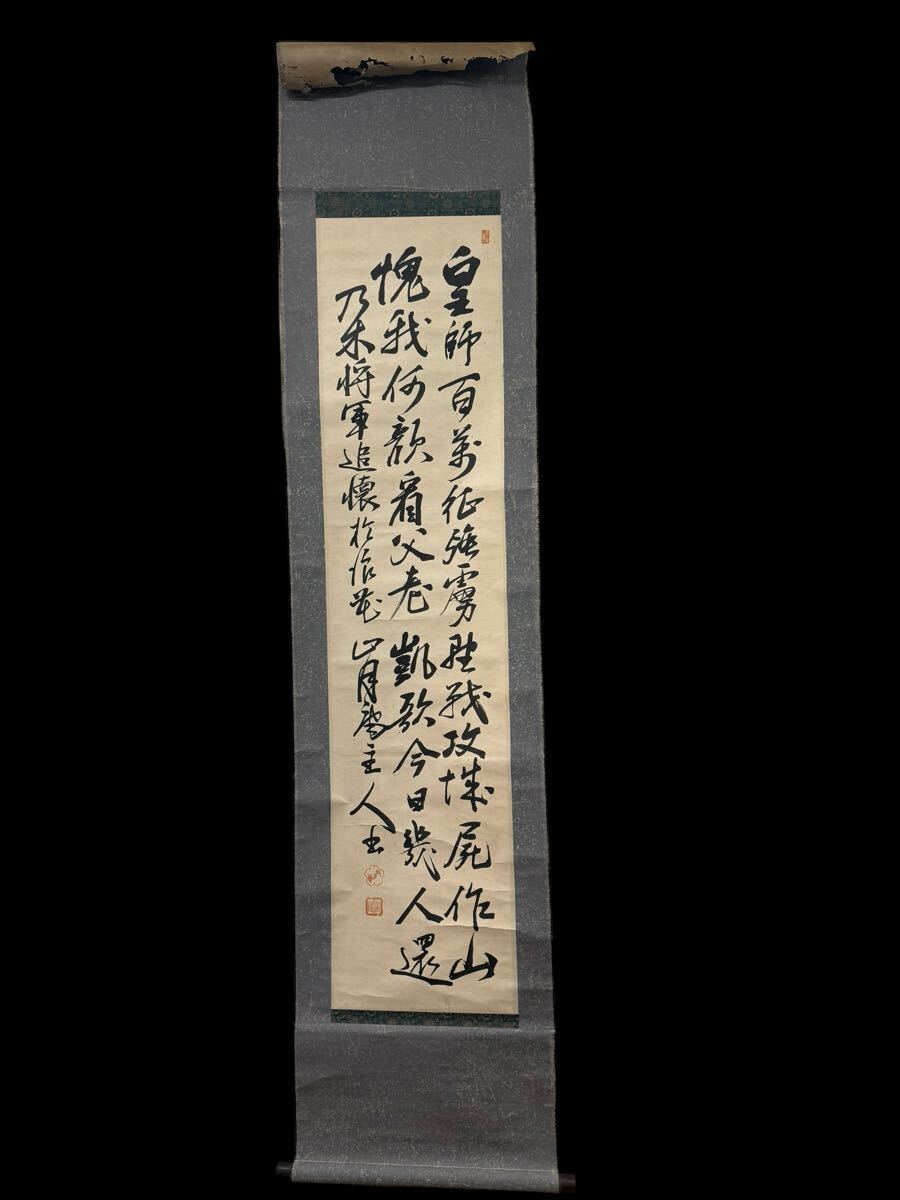 皇師百萬征強虜野戦攻城屍作山
愧我何顔看父老凱歌今日幾人還
乃木将軍追懐於作 山月庵主人書